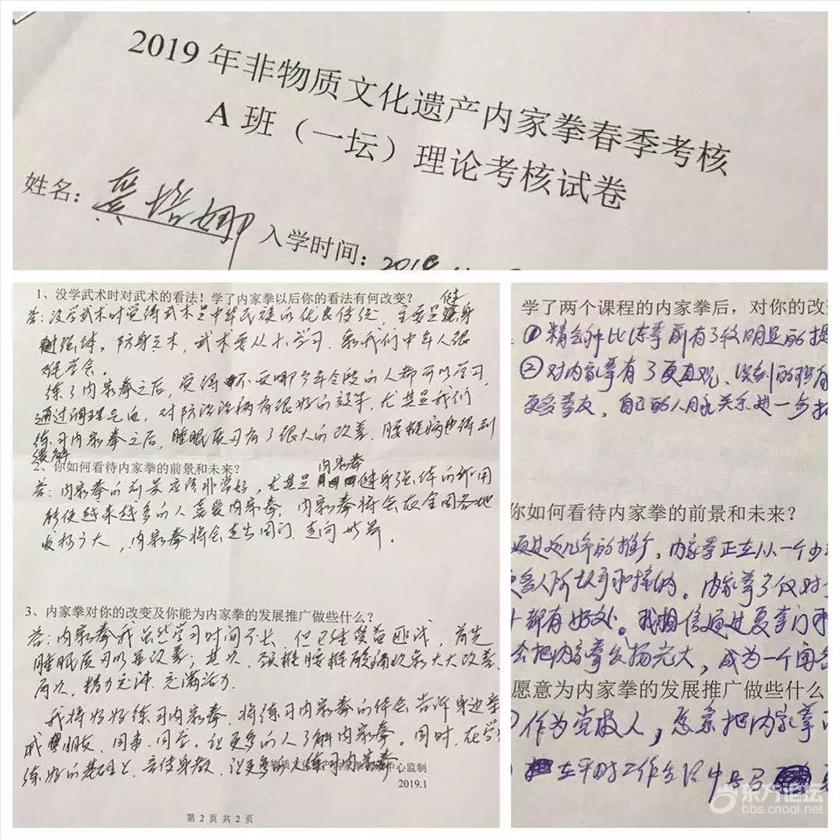 2019年非物质文化遗产内家拳春季考核
A班（一坛）理论考核试卷
姓名：龚培娜 入学时间：201
1、没学武术时对武术的看法！学了内家拳以后你的看法有何改变？
答：没学武术时觉得武术是中华民族的优良传统，主要是健身
强体，防身之术，武术要从小学习，象我们中年人很
难学会。
练了内家拳之后，觉得不要哪个年令段的人都可以学习，
通过调理气血，对防治治病有很好的效果，尤其是我们
练习内家拳之后，睡眠质量有了很大的改善，腰椎病也得到
缓解
2、你如何看待内家拳的前景和未来？
答：内家拳的前景应该非常好，尤其是内家拳健身强体的作用
能使越来越多的人喜爱内家拳，内家拳将会在全国各地
发扬广大，内家拳将会走出国门，走向世界。
3、内家拳对你的改变及你能为内家拳的发展推广做些什么？
答：内家拳我虽然学习时间不长，但已经受益匪浅，首先
睡眠质量改善；其次，颈椎腰椎酸痛大大改善
再次，精力充沛，充满活力。
我将好好练习内家拳，将练习内家拳的体会告诉身边亲
戚朋友、同事、同学，让更多的人了解内家拳。同时，在学
练好的基础上，言传身教，让更多的人练习内家拳
中心监制
2019.1
第 2 页 共 2 页
学了两个课程的内家拳后，对你的改
①精气神比练拳前有了较明显的提
②对内家拳有了更直观、深刻的理
更多拳友，自己的人脉关系进一步
你如何看待内家拳的前景和未来？
通过这几年的推广，内家拳正在从一个少
更多人所认可和接纳。内家拳不仅对
都有好处。我相信通过更多门
会把内家拳发扬光大，成为一个
愿意为内家拳的发展推广做些什么
作为党政人，愿意把内家拳
在平时工作生活中
东方论坛
bbs.cnool.net